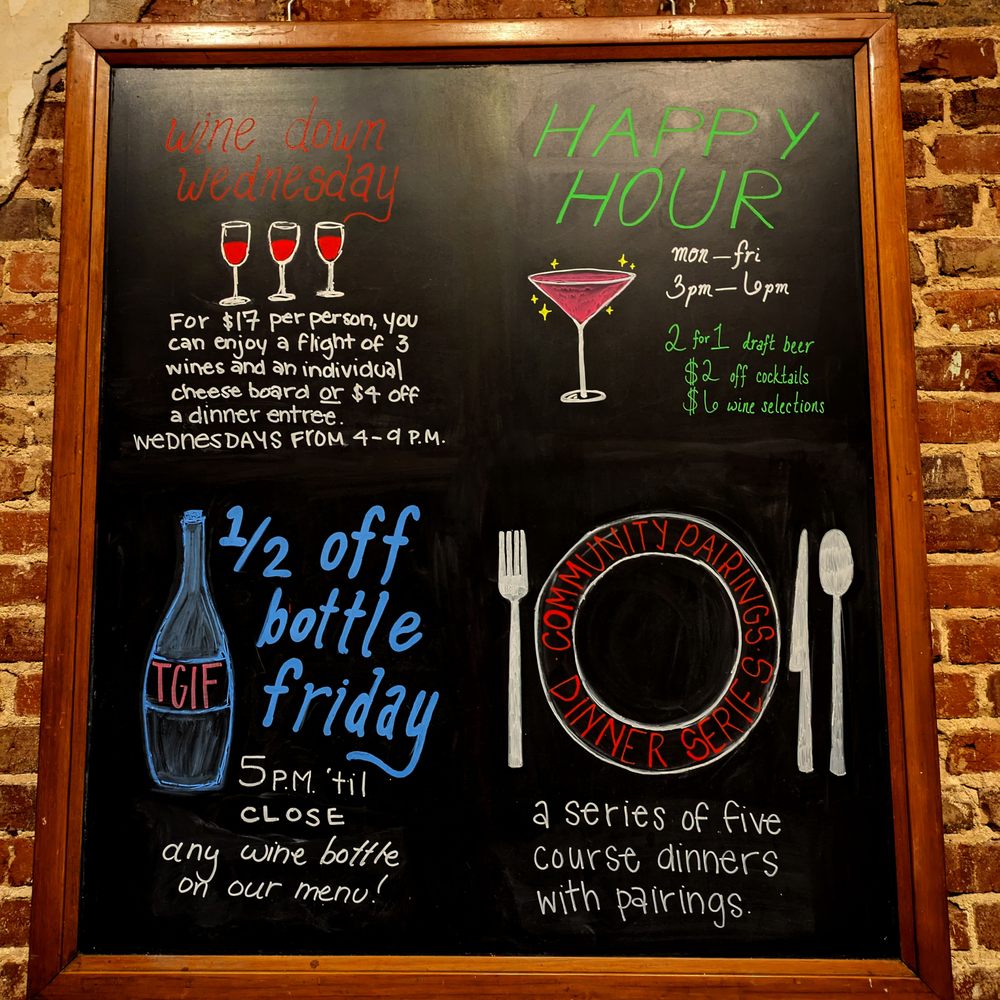 wine down
wednesday
For $17 per person, you
can enjoy a flight of 3
wines and an individual
cheese board or $4 off
a dinner entree.
WEDNESDAYS FROM 4-9 P.M.
HAPPY
HOUR
mon-fri
3pm-6pm
2 for 1 draft beer
$2 off cocktails
$6 wine selections
1/2 off
bottle
friday
TGIF
5 P.M. 'til
CLOSE
any wine bottle
on our menu!
COMMUNITY PAIRINGS·
DINNER SERIES·
a series of five
course dinners
with pairings.